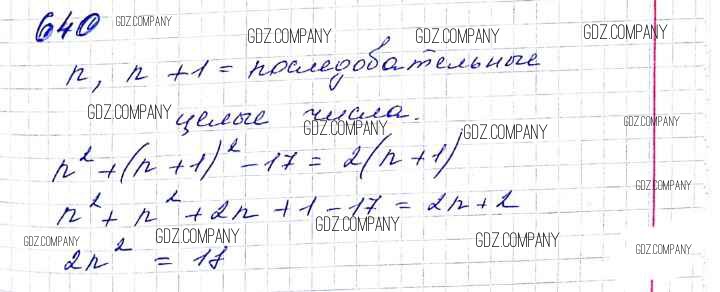 640 GDZ.COMPANY GDZ.COMPANY GDZ.COMPANY GDZ.COMPANY
n, n + 1 = последовательные
GDZ.COMPANY целые числа. GDZ.COMPANY
n² + (n + 1)² - 17 = 2(n + 1) GDZ.COMPANY GDZ.COMPANY
n² + n² + 2n + 1 - 17 = 2n + 2 GDZ.COMPANY
GDZ.COMPANY GDZ.COMPANY GDZ.COMPANY GDZ.COMPANY GDZ.COMPANY
2n² = 18